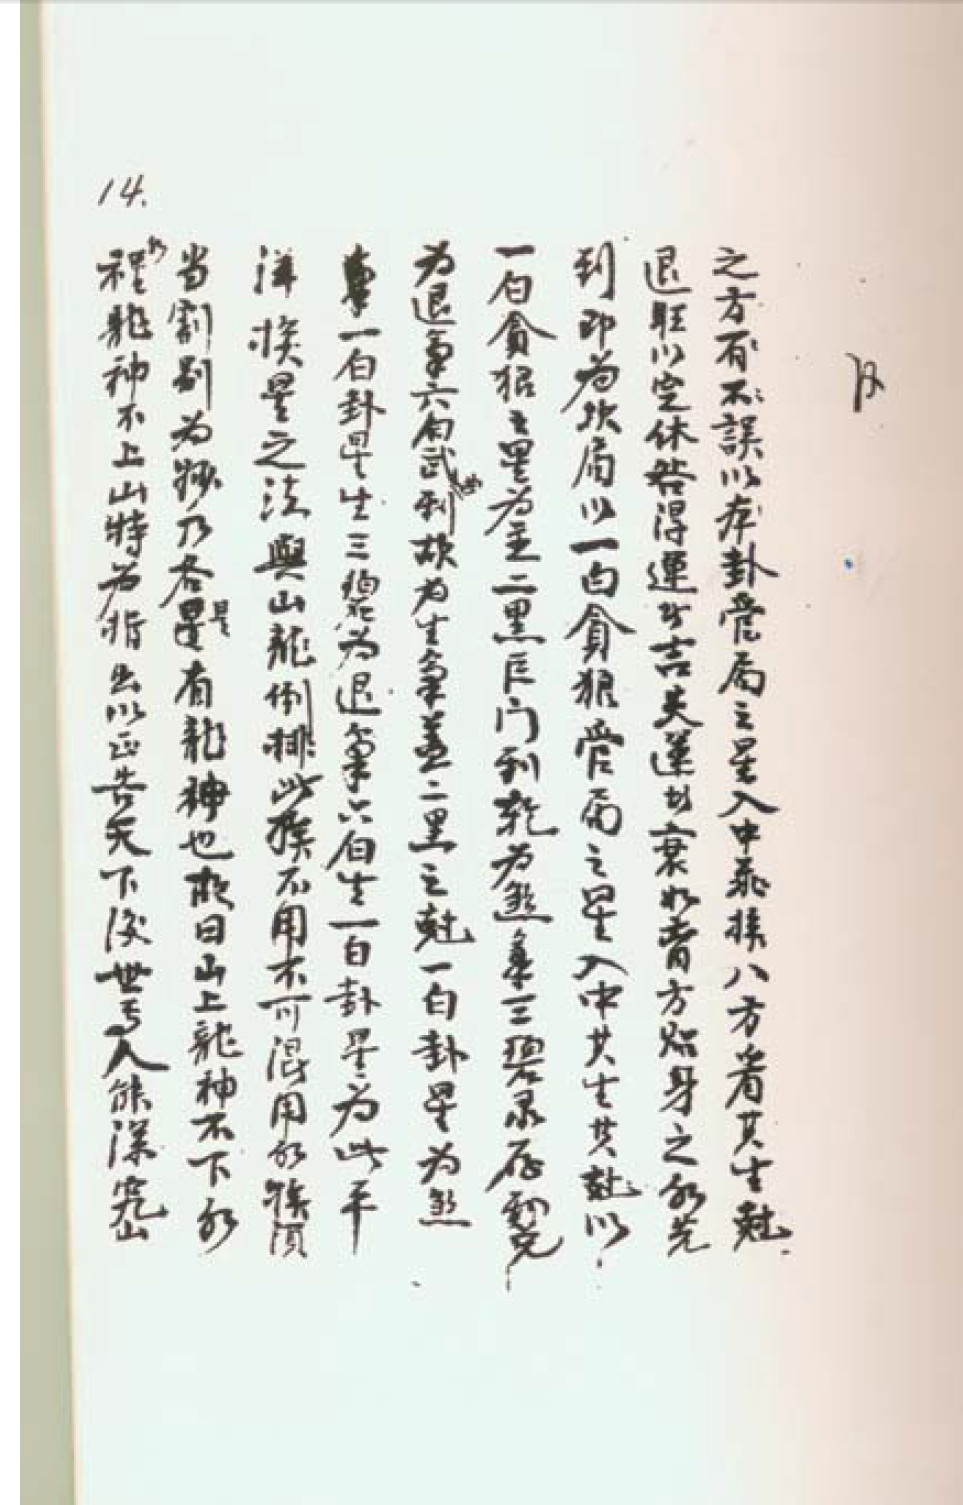 14.
之方有不誤以本卦管局之星入中飛挨八方看其生尅
退旺以定休咎得運者吉失運者衰如背方貼身之水先
到即為坎局以一白貪狼管局之星入中其生其尅以
一白貪狼之星為主二黒巨门到乾為煞氣三碧录存到兌
為退氣六白武到故為生氣盖二黒之尅一白卦星為煞
氣一白卦星生三碧為退氣六白生一白卦星為此平
洋挨星之法與山龍倒排此挨不用不可混用水
当割別为乃各是有龍神也故曰山上龍神不下水
水裡龍神不上山特为指出以正告天下後世人能深究山